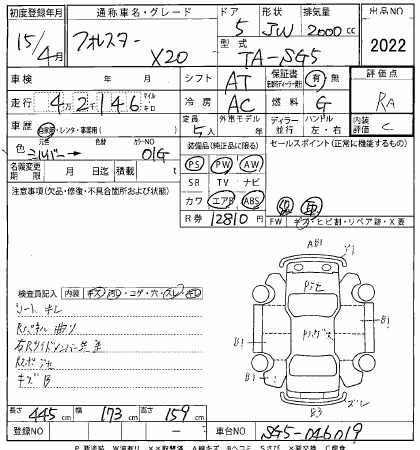 初度登録年月 通称車名・グレード ドア 形状 排気量 出品NO.
15/4月 フォレスター X20 5 JW 2000 cc 2022
型式 TA-SG5
車検 年 月 シフト AT 保証書 有 無 評価点
走行 4万2千146 マイル キロ 冷房 AC 燃料 G RA
車歴 自家用・レンタ・事業用( ) 定員 5人 外車モデル 年 ディーラー 並行 ハンドル 左・右 内装評価 C
色 元色 シルバー → 色替 カラーNO 01G
装備品(純正品に限る) セールスポイント(正常に機能するもの)
名義変更期限 月 日迄 積載 t
PS PW AW
SR TV ナビ
カワ エアB ABS
R券 12810 円
注意事項(欠品・修復・不具合箇所および状態)
FW キズ・ヒビ割・リペア跡・X要
検査員記入 内装 キズ・汚・コゲ・穴・スレ・キレ
シート キレ
Rパネル 曲り
右Rサイドメンバー
キズ B
AB1
B1
B1
B3
長さ 445 cm 幅 173 cm 高さ 159 cm
登録NO − 車台NO SG5-046019